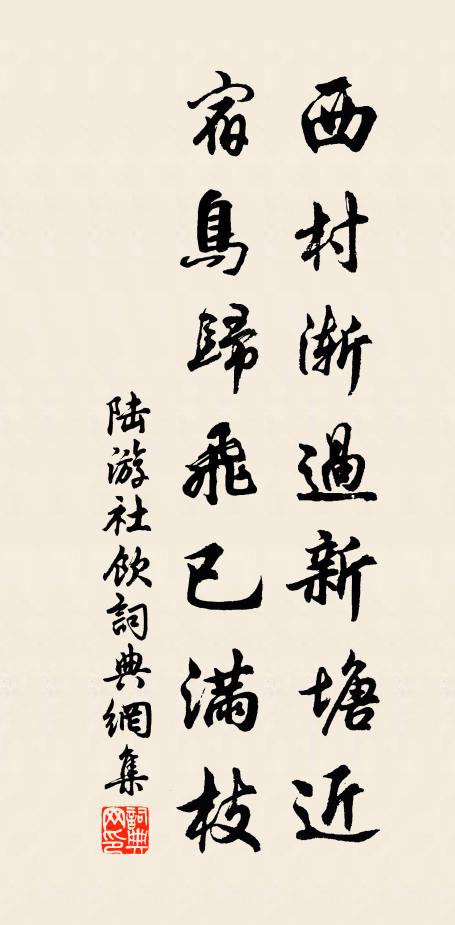 西村漸過新塘近
宿鳥歸飛已滿枝
陆游社飲詞典網集
詞典網印